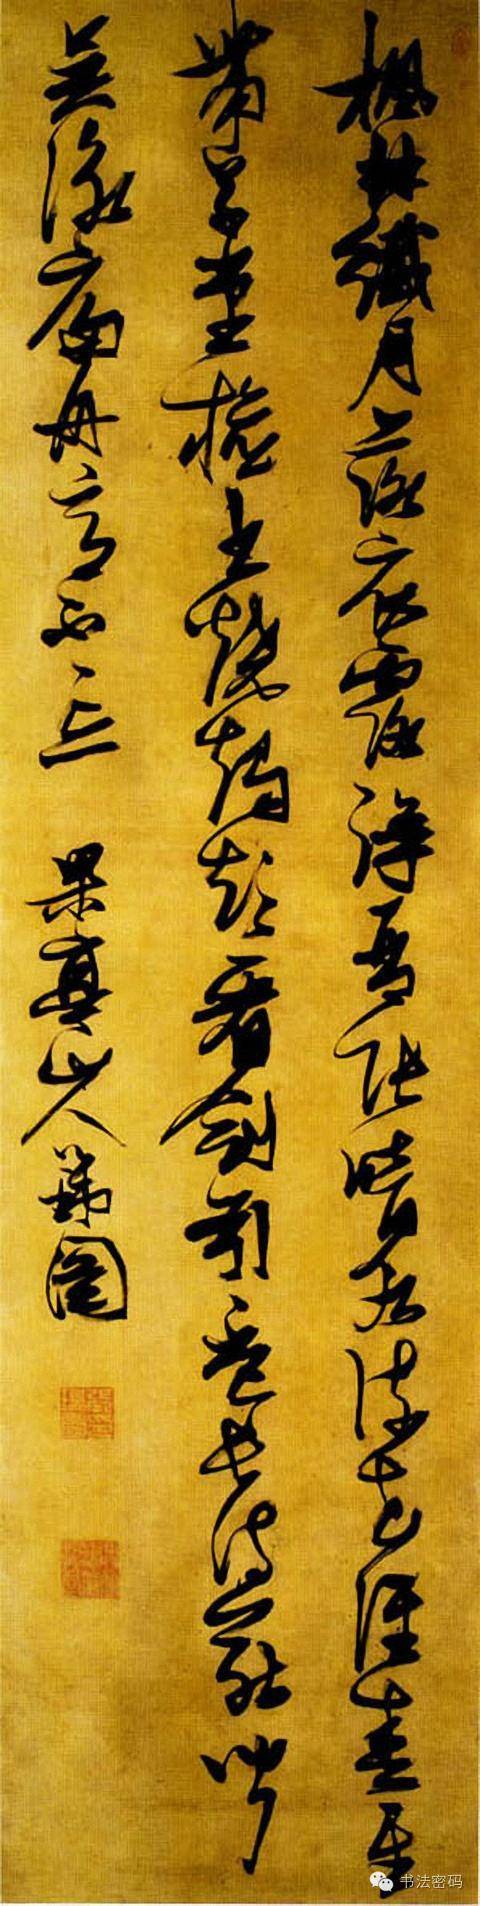 楓林纖月落衣露淨琴張暗水流花徑春星
帶草堂檢書燒燭短看劍引盃長詩罷聞
吳詠扁舟意不忘 果亭山人瑞圖
书法密码